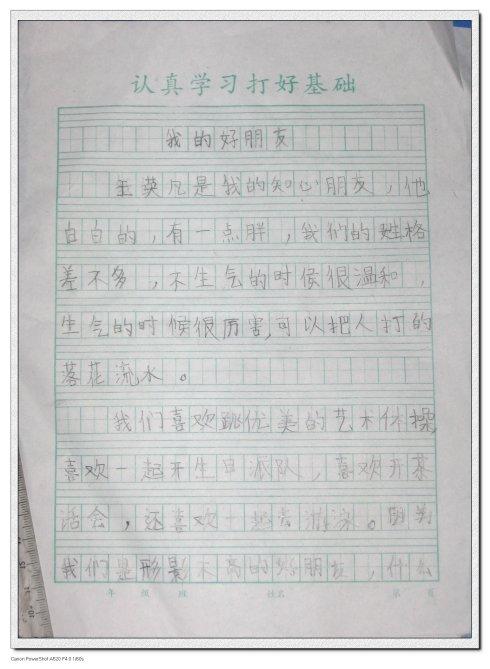 认真学习打好基础
我的好朋友
王英凡是我的知心朋友，他
白白的，有一点胖，我们的姓格
差不多，不生气的时候很温和，
生气的时候很厉害,可以把人打的
落花流水。
我们喜欢跳优美的艺术体操
喜欢一起开生日派队，喜欢开茶
话会，还喜欢一起去游泳。
我们是形影不离的好朋友，什么
年 级 班 姓名 第 页
Canon PowerShot A520 F4.0 1/60s